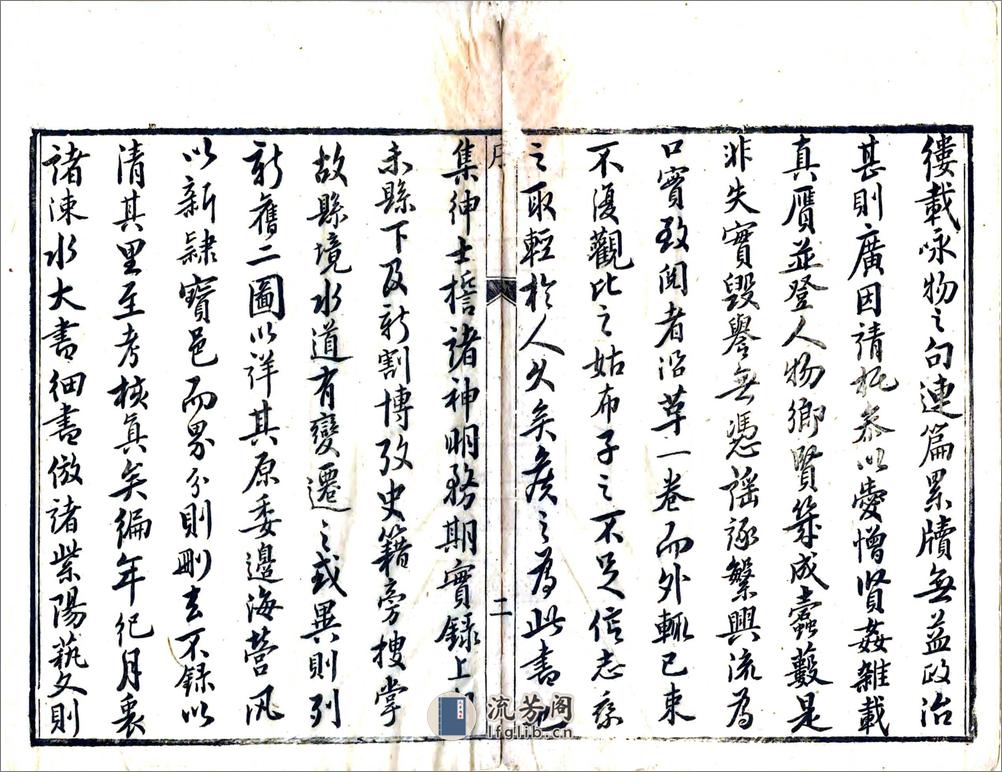 縷載咏物之句連篇累牘無益政治
甚則廣因請托參以愛憎賢姦雜載
真贋並登人物鄉賢築成蠹藪是
非失實毀譽無憑謡諑繁興流為
口實致閲者沿革一卷而外輒已束
不復觀比之姑布子之不足信志乘
之取輕扵人久矣矦之為此書也
序
二
集紳士誓諸神明務期實録上
未縣下及新割博攷史籍旁搜掌
故縣境水道有變遷之或異則列
新舊二圖以詳其原委邊海營汛
以新隷寶邑而畧分則刪去不録以
清其里至考核真矣編年紀月裏
諸涑水大書細書倣諸紫陽藝文則
流芳阁
lfglib.cn